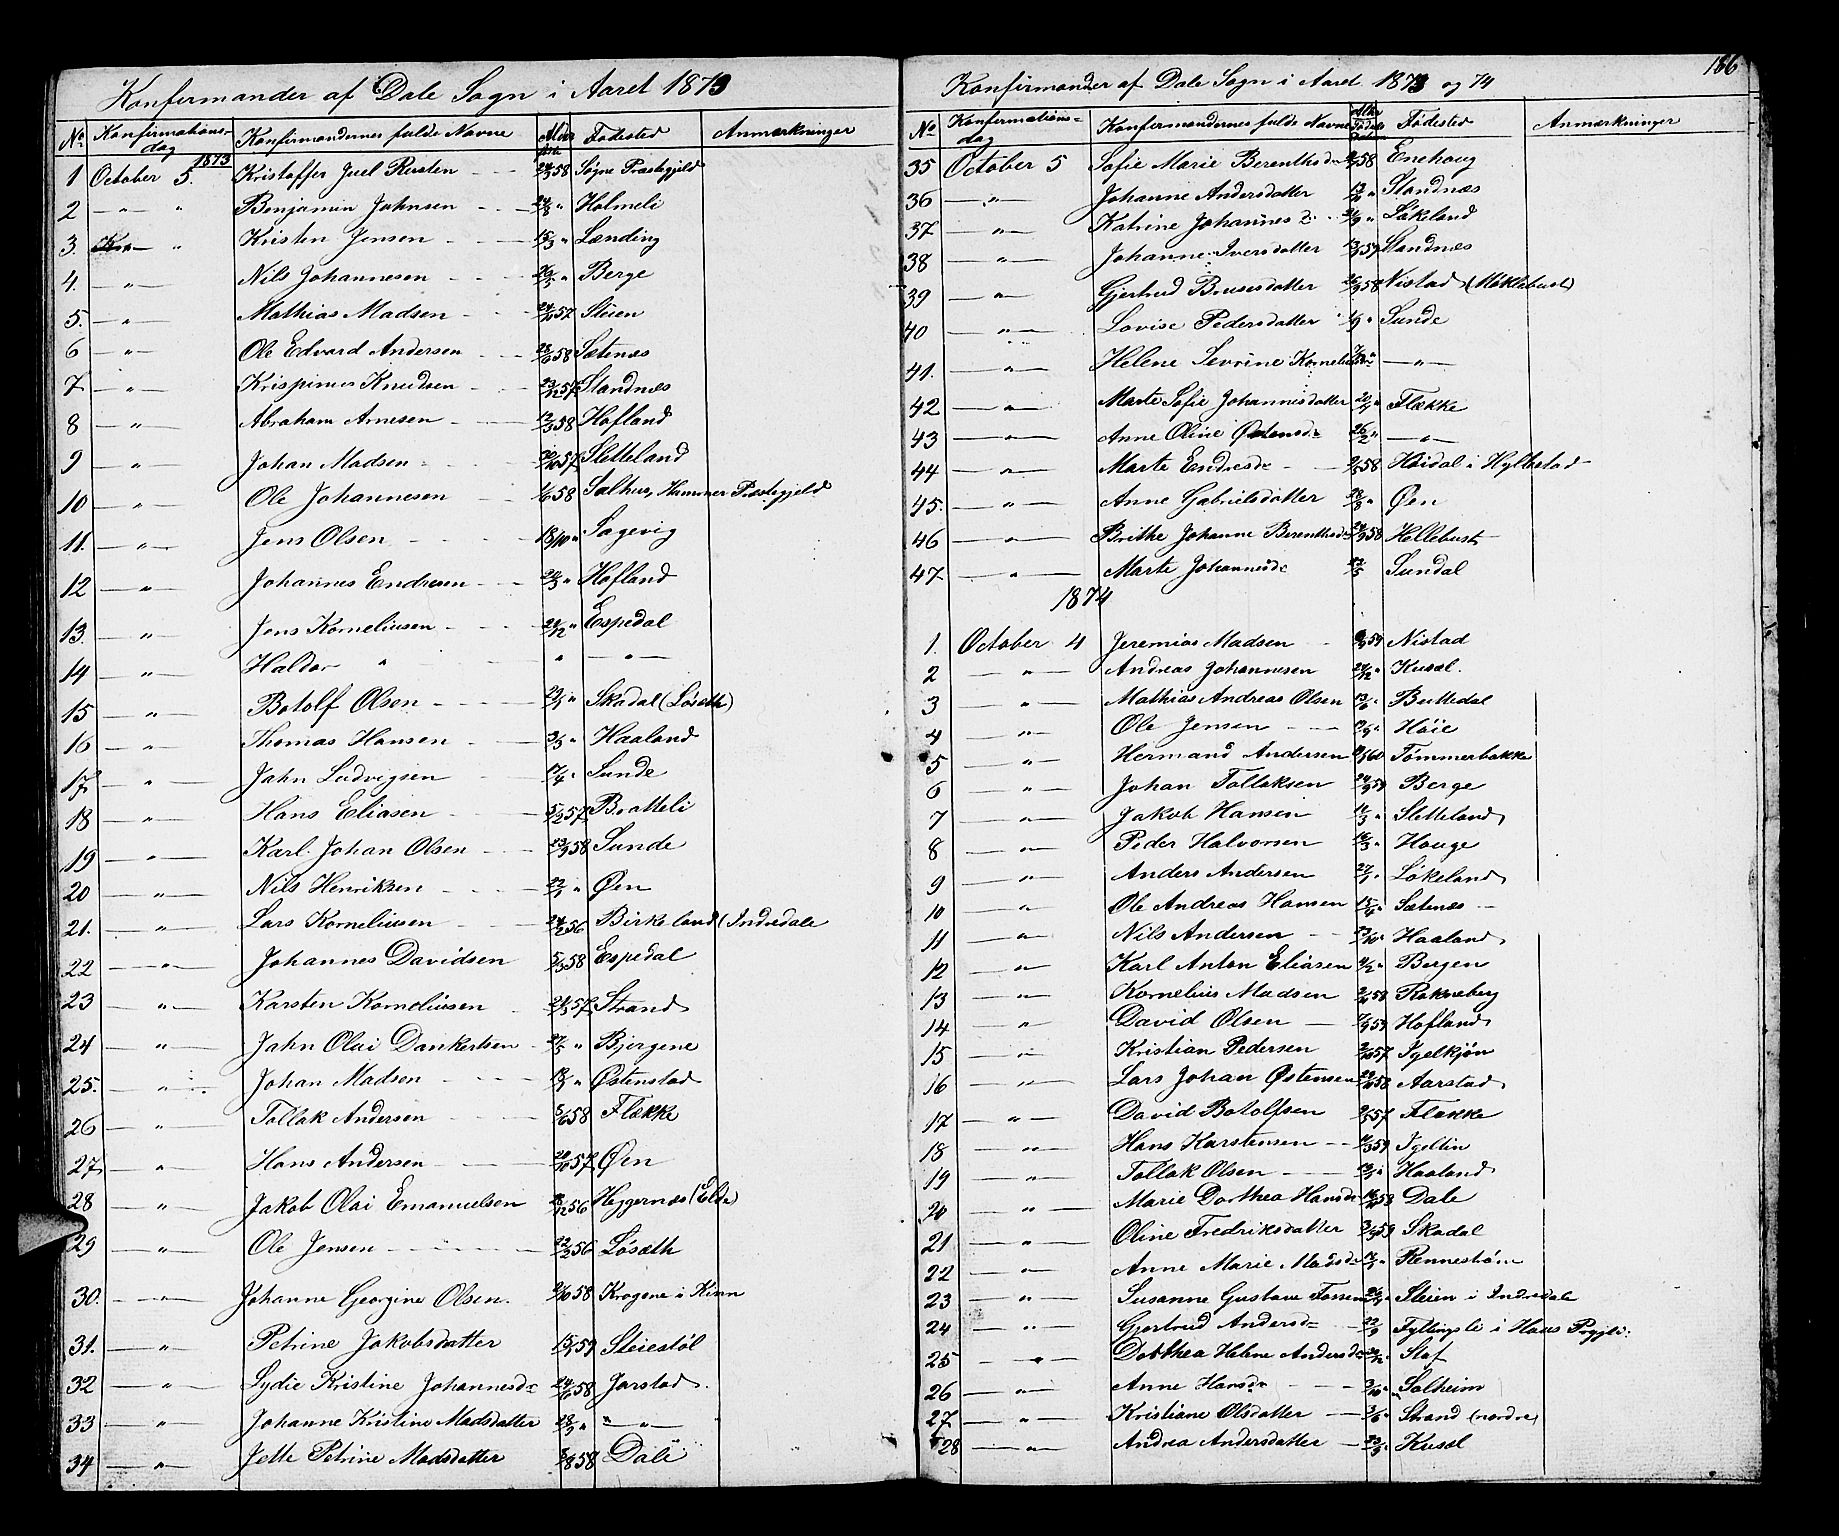 Konfirmander af Dale Sogn i Aaret 1873
No Konfirmations-dag Konfirmandernes fulde Navne Fødested Anmærkninger
1873
1 October 5. Kristoffer Juel Kersten 58 Søgne Præstegjeld
2 — " — " Benjamin Johnsen " Holmeli
3. — " Kristen Jensen 15/3 " Lending
4. — " — Nils Johannesen " Berge
5. — " — Mathias Madsen 57 Steien
6 — " — Ole Edvard Andersen 58 Sætenæs
7 — " — Krispinus Knudsen 23/12 57 Standnæs
8 — " — Abraham Arnesen 58 Hofland
9 — " — Johan Madsen 57 Sletteland
10 — " — Ole Johannesen 58 Salhus, Hammer Præstegjeld
11. — " — Jens Olsen 18/10 " Sagevig
12 — " — Johannes Endresen " Hofland
13. — " — Jens Korneliusen " Espedal
14 — " — Haldor " " — " —
15 — " — Botolf Olsen " Skadal (Løseth)
16 — " — Thomas Hansen " Haaland
17 — " — Jahn Ludvigsen 17/4 " Sunde
18 — " — Hans Eliasen 57 Bratteli
19 — " — Karl Johan Olsen 58 Sunde
20 — " — Nils Henriksen " Øen
21. — " — Lars Korneliusen 56 Birkeland (Indredale
22 — " — Johannes Davidsen 58 Espedal
23 — " — Karsten Korneliusen 57 Strand
24 — " — Jahn Olai Dankertsen 27/5 " Bjergene
25. — " — Johan Madsen " Østenstad
26 — " — Tollak Andersen 58 Flække
27 — " — Hans Andersen 20/10 57 Øen
28 — " — Jakob Olai Emanuelsen 56 Heggernæs (Elde)
29 — " — Ole Jensen 22/2 56 Løseth
30. — " — Johanne Georgine Olsen. 58 Krogene i Kinn
31. — " — Petrine Jakobsdatter 59 Steiestøl
32 — " — Lydie Kristine Johannesd: 58 Jarstad.
33 — " — Johanne Kristine Madsdatter " " — " —
34 — " — Jette Petrine Madsdatter 58 Dale
186
Konfirmander af Dale Sogn i Aaret 1873 og 74
No Konfirmations-dag Konfirmandernes fulde Navne Fødested Anmærkninger
35 October 5 Sofie Marie Berenthsd: 58 Enehaug
36 — " — Johanne Andersdatter " Standnæs
37 — " — Katrine Johannes D: " Løkland
38 — " — Johanne Iversdatter 59 Standnæs
39 — " — Gjertrud Brusesdatter 58 Nistad (Møklebust)
40 — " — Lovise Pedersdatter " Sunde
41. — " — Helene Sevrine — " —
42 — " — Marte Sofie Johannesdatter " Flække
43 — " — Anne Oline Østensd: 26/2 " — " —
44 — " — Marte Endresd: 58 Høidal i Hyllestad
45. — " — Anne Gabrielsdatter " Øen
46 — " — Brithe Johanne Berenthsd: 58 Hellebust
47. — " — Marte Johannesd: Sundal
1874
1. October 4 Jeremias Madsen 59 Nistad
2 — " — Andreas Johannesen " Kusæl.
3 — " — Mathias Andreas Olsen 13/6 " Bulledal
4 — " — Ole Jensen " Høie
5 — " — Hermand Andersen 60 Tømmerbakke
6 — " — Johan Tollaksen 59 Berge
7 — " — Jakob Hansen " Sletteland
8 — " — Peder Halvorsen " Hauge
9 — " — Anders Andersen " Løkeland
10 — " — Ole Andreas Hansen " Sætenes
11 — " — Nils Andersen " Haaland
12 — " — Karl Anton Eliasen " Bergen
13 — " — Kornelius Madsen 58 Rakneberg
14 — " — David Olsen 59 Hofland
15 — " — Kristian Pedersen 57 Igelkjøn
16 — " — Lars Johan Østensen 58 Aarstad
17 — " — David Botolfsen 57 Flække
18 — " — Hans Karstensen 59 Igeltin
19 — " — Tollak Olsen " Haaland
20 — " — Marie Dorthea Hansd: 58 Dale
21 — " — Oline Fredriksdatter 59 Skadal
22 — " — Anne Marie Madsd: "
23 — " — Susanne Gustava " Steien i Indredale
24 — " — Gjertrud Andersd: " Fyllingsli i Haus
25 — " — Dorthea Helene Andersd: " Staf
26 — " — Anne Hansd: " Solheim
27 — " — Kristiane Olsdatter " Strand (nordre)
28 — " — Andrea Andersdatter " Kusæl